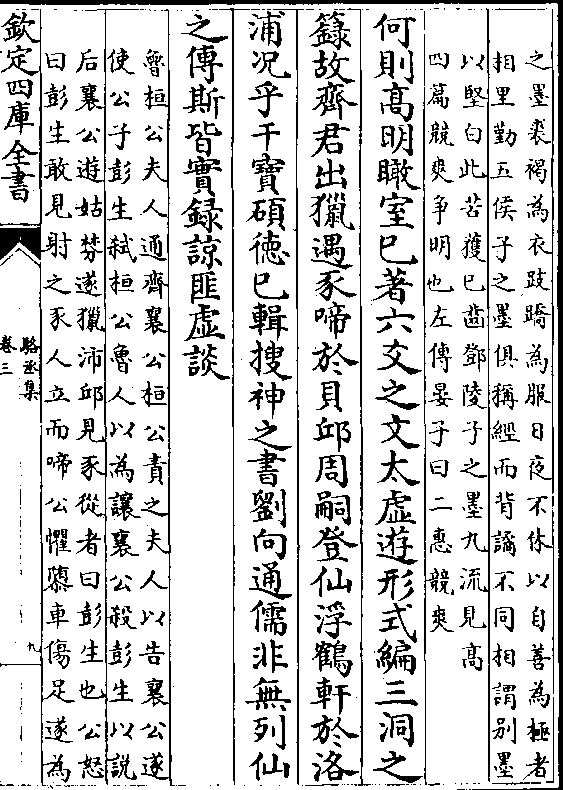 之墨裘褐為衣跂蹻為服日夜不休以自善為極者
相里勤五侯子之墨俱稱經而背譎不同相謂别墨
以堅白此苦獲巳齒鄧陵子之墨九流見髙
四篇競爽争明也左傳晏子曰二惠競爽
何則髙明瞰室已著六爻之文太虚遊形式編三洞之
籙故齊君出獵遇豕啼於貝邱周嗣登仙浮鶴軒於洛
浦况乎干寶碩徳已輯搜神之書劉向通儒非無列仙
之傳斯皆實録諒匪虚談
魯桓公夫人通齊襄公桓公責之夫人以告襄公遂
使公子彭生弑桓公魯人以為讓襄公殺彭生以說
后襄公遊姑棼遂獵沛邱見豕從者曰彭生也公怒
曰彭生敢見射之豕人立而啼公懼墜車傷足遂為
欽定四庫全書
駱丞集
卷三
九